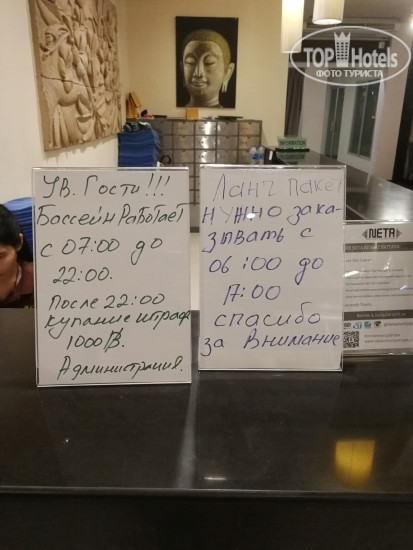 TOP Hotels
ФОТО ТУРИСТА
INFORMATION
Ув. Гости!!!
Бассейн Работает
с 07:00 до
22:00.
После 22:00
купание штраф
1000 ฿.
Администрация.
Ланч Пакет
нужно зака-
зывать с
06:00 до
17:00
спасибо
за внимание
NETA